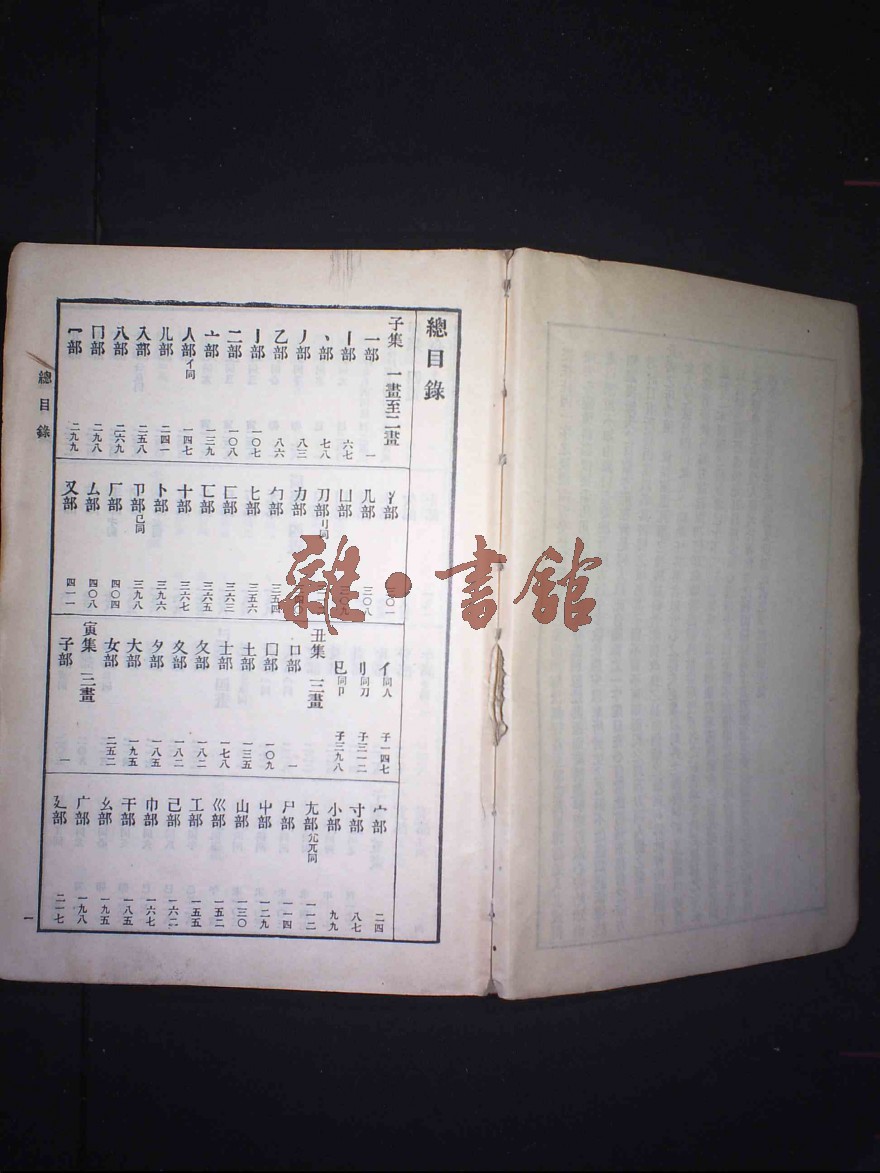 總目錄
子集 一畫至二畫
一部 一
丨部 六七
丶部 七八
丿部 八三
乙部 八六
亅部 一〇七
二部 一〇八
亠部 一三九
人部 亻同 一四七
儿部 二四一
入部 二五八
八部 二六九
冂部 二九八
冖部 二九九
冫部 三〇一
几部 三〇八
凵部 三〇九
刀部 刂同
力部
勹部 三五四
匕部 三五六
匚部 三六三
匸部 三六五
十部 三六七
卜部 三九六
卩部 㔾同 三九八
厂部 四〇四
厶部 四〇八
又部 四一一
亻同人 子一四七
刂同刀 子三一二
㔾同卩 子三九八
丑集 三畫
口部 一
囗部 一〇九
土部 一三五
士部 一七八
夂部 一八二
夊部 一八二
夕部 一八五
大部 一九五
女部 二五二
寅集 三畫
子部 一
宀部 二四
寸部 八七
小部 九九
尢部 尣兀同 一一二
尸部 一一四
屮部 一二九
山部 一三〇
巛部 一五二
工部 一五五
己部 一六二
巾部 一六七
干部 一八五
幺部 一九五
广部 一九八
廴部 二一七
總目錄
一
雜·書館